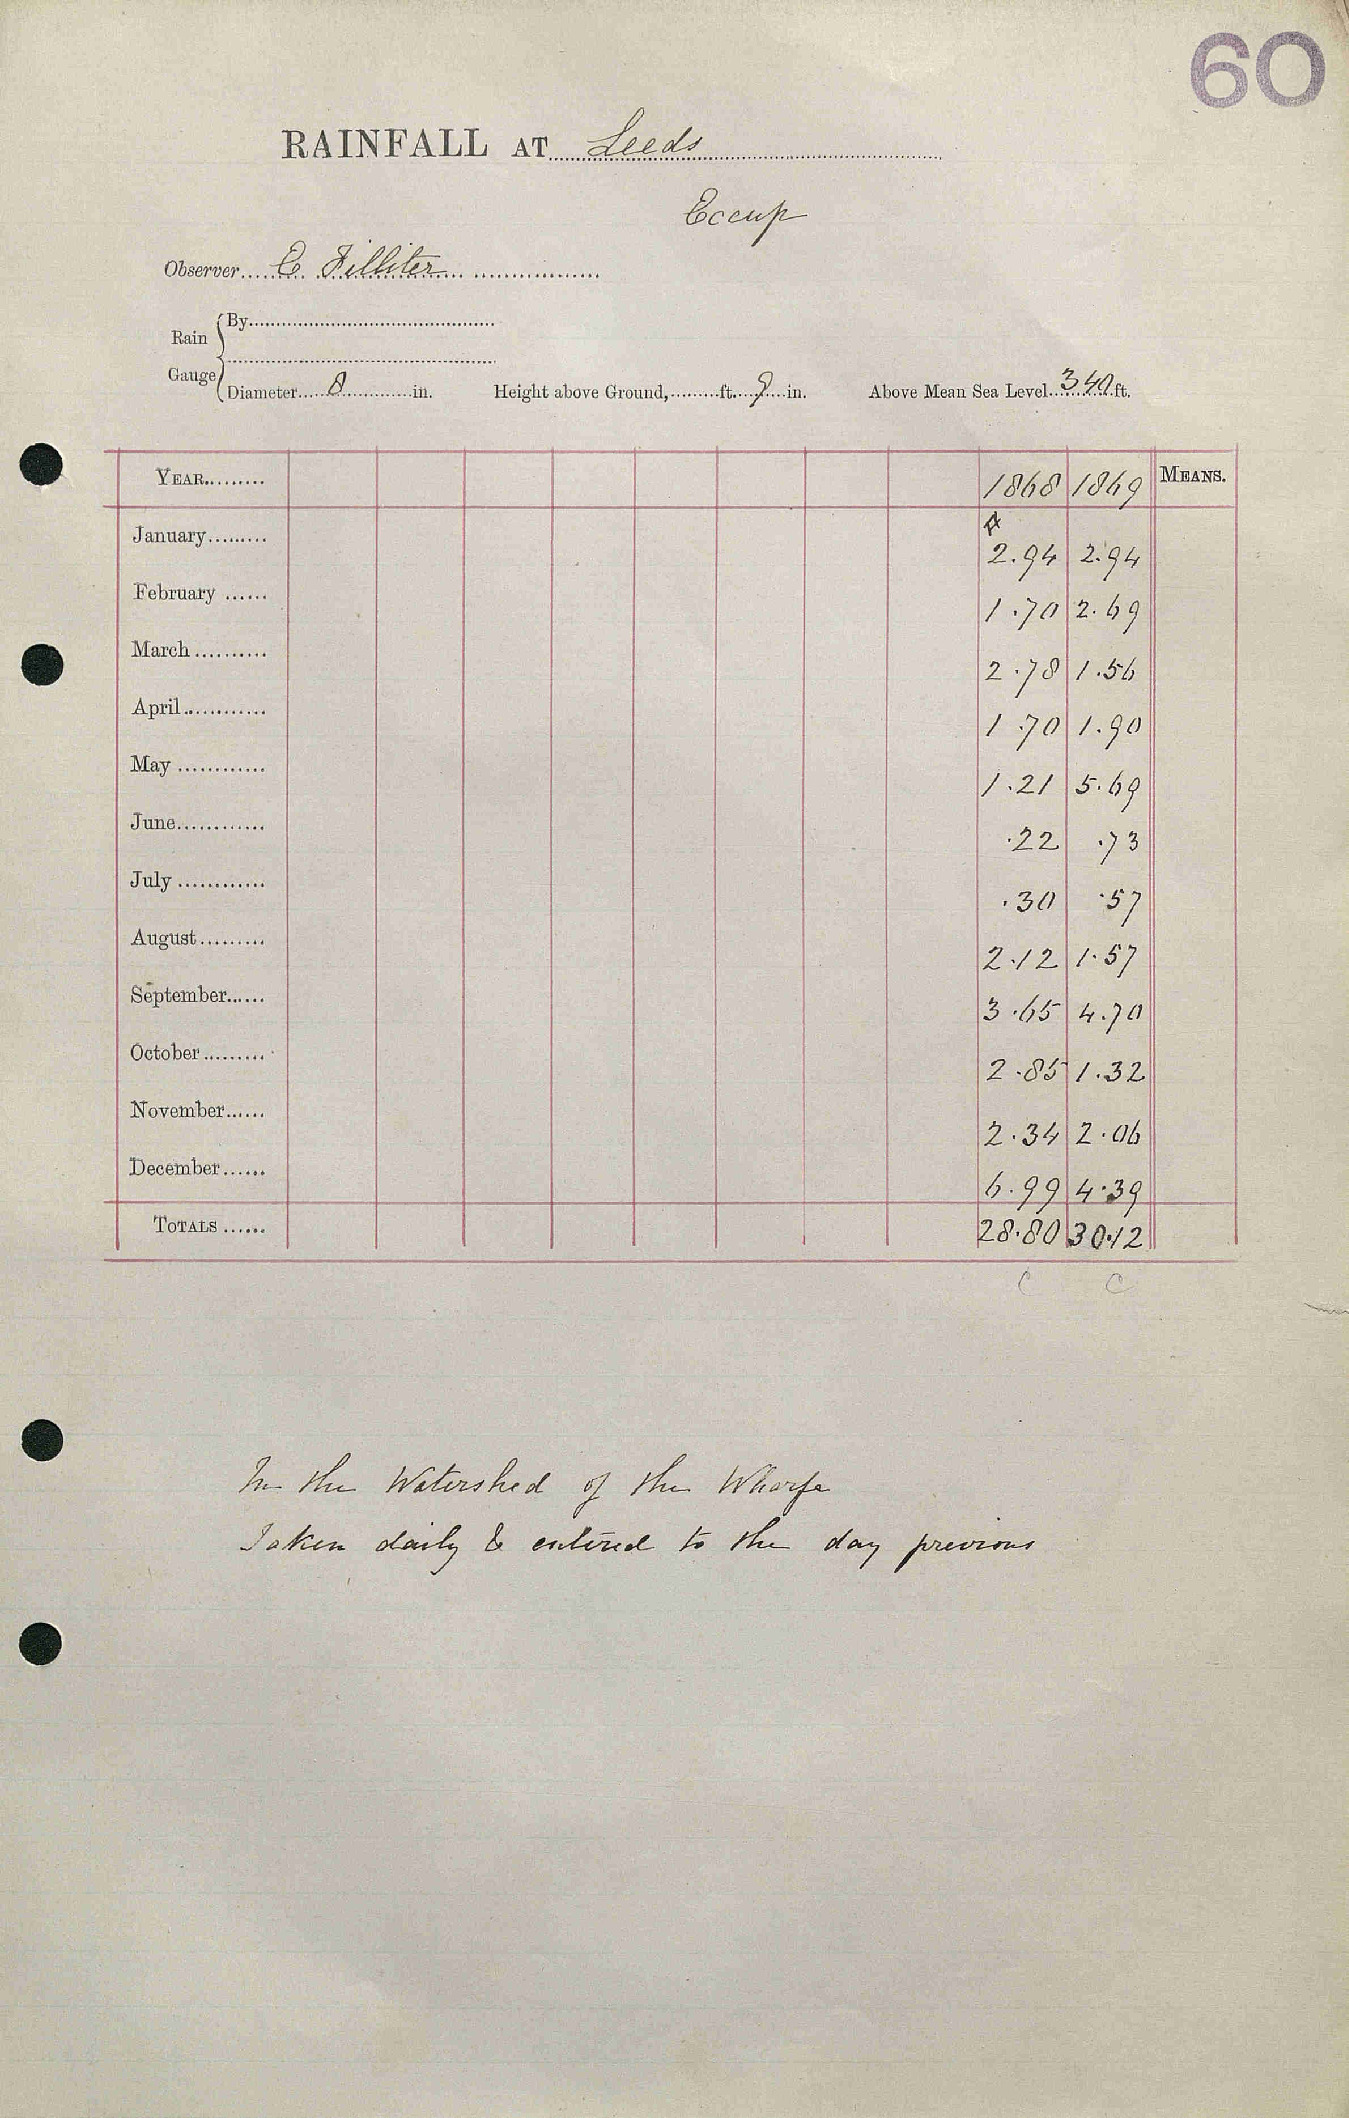 60
RAINFALL AT Leeds
Eccup
Observer C. Filliter
Rain Gauge { By
Diameter 8 in. Height above Ground, ft. 9 in. Above Mean Sea Level 340 ft.
YEAR 1868 1869 MEANS.
January 2.94 2.94
February 1.70 2.69
March 2.78 1.56
April 1.70 1.90
May 1.21 5.69
June .22 .73
July .30 .57
August 2.12 1.57
September 3.65 4.70
October 2.85 1.32
November 2.34 2.06
December 6.99 4.39
TOTALS 28.80 30.12
C C
In the Watershed of the Wharfe
Taken daily & entered to the day previous